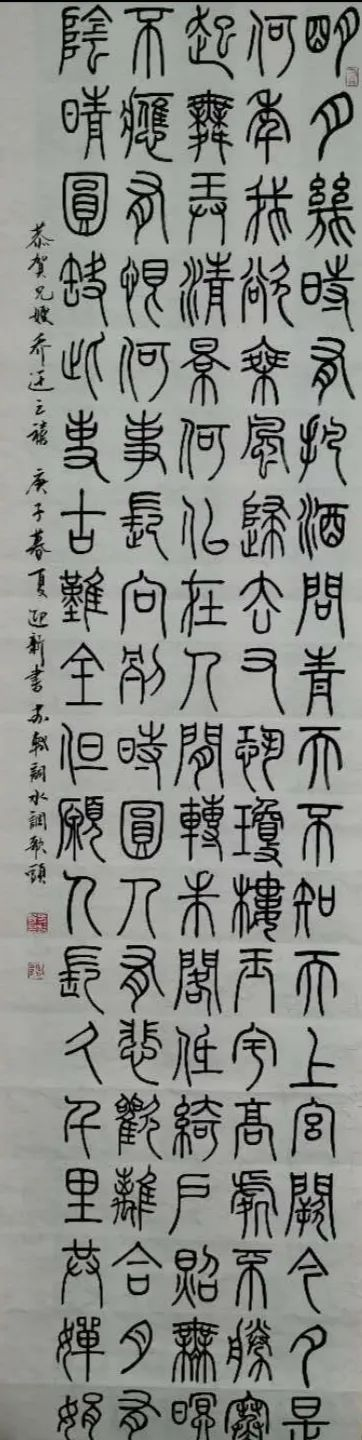 明月幾時有把酒問青天不知天上宮闕今夕是
何年我欲乘風歸去又恐瓊樓玉宇高處不勝寒
起舞弄清景何似在人間轉朱閣低綺戶照無眠
不應有恨何事長向別時圓人有悲歡離合月有
陰晴圓缺此事古難全但願人長久千里共嬋娟
恭賀兄嫂乔迁之禧 庚子暮夏迎新書苏軾詞水調歌頭